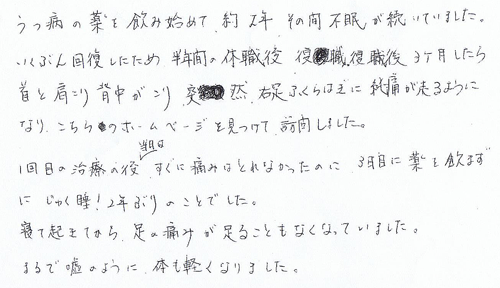 うつ病の薬を飲み始めて、約2年 その間不眠が続いていました。
いくぶん回復したため、半年間の休職後 復職 復職後 3ヶ月したら
首と肩こり 背中がこり 突然 右足ふくらはぎに 純痛が走るように
なり、こちらのホームページを見つけて、訪問しました。
当日は
1回目の治療の後、すぐに痛みはとれなかったのに、3日目に薬を飲まず
に じゅく睡! 2年ぶりのことでした。
寝て起きてから、足の痛みが走ることもなくなっていました。
まるで嘘のように、体も軽くなりました。